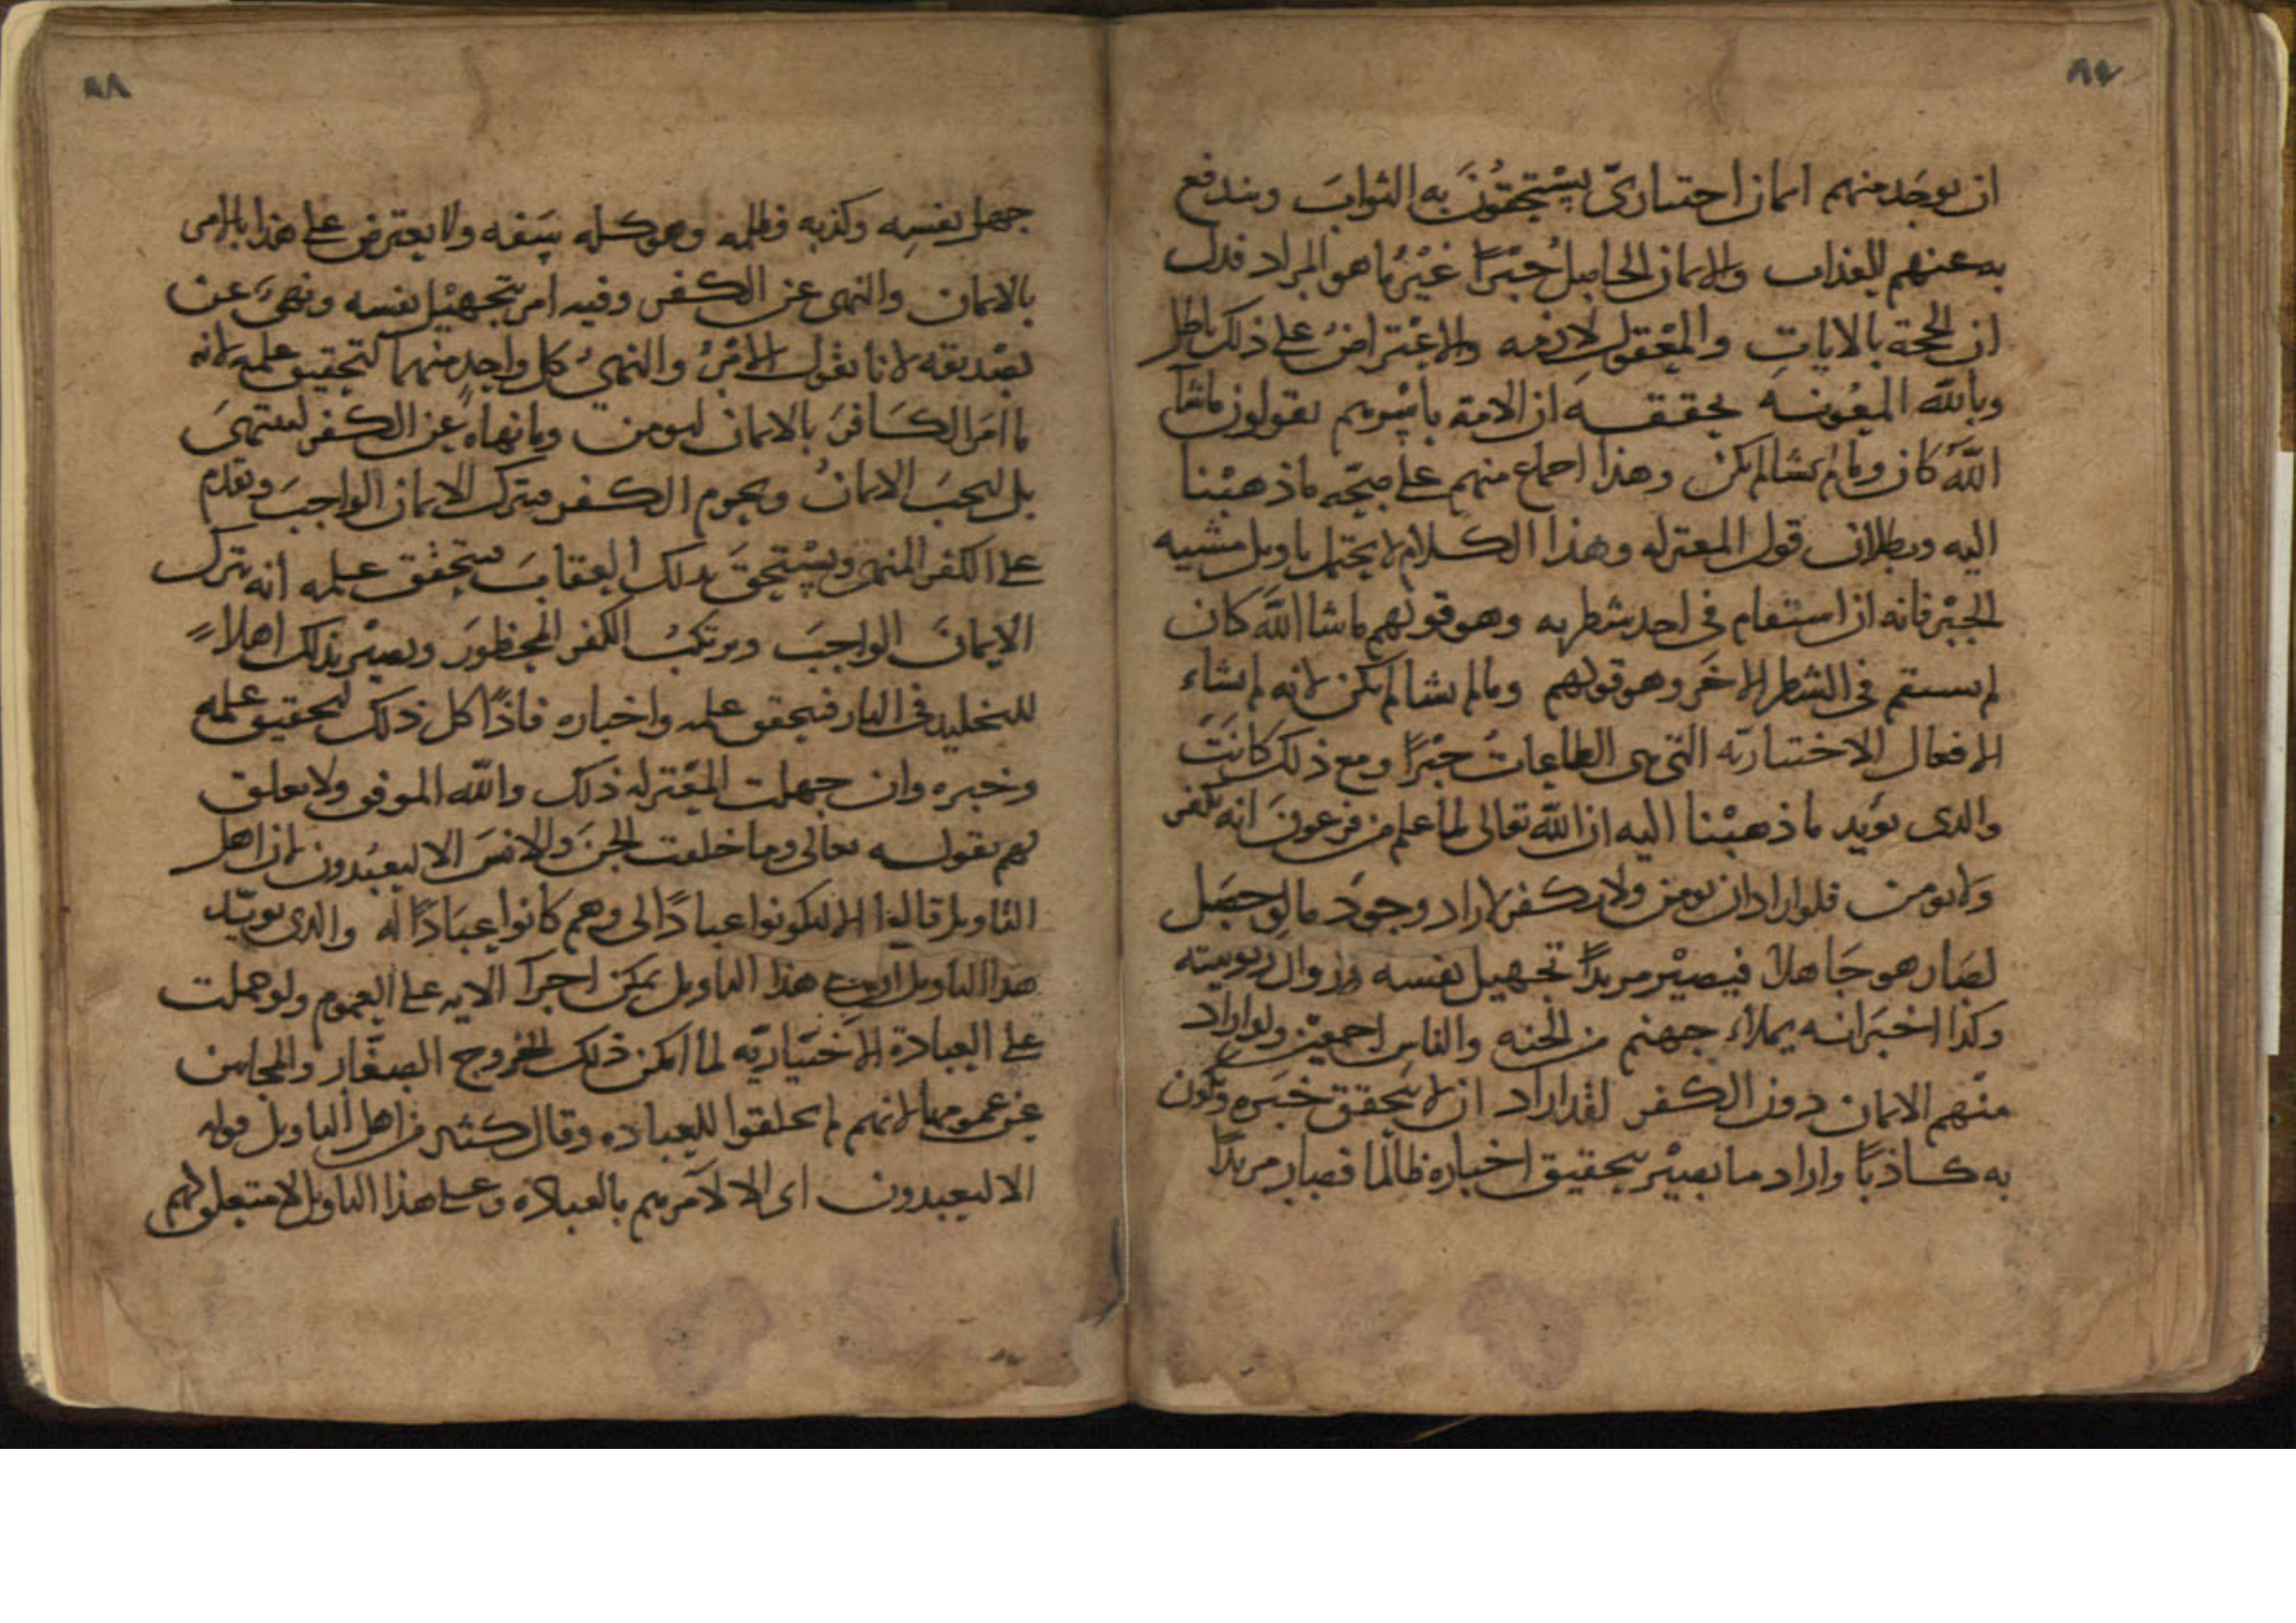 ٨٧
ان يوجد منهم ايمان اختياريّ يستحقّون به الثواب ويندفع
به عنهم العذاب والايمان الحاصل جبرًا غير ما هو المراد فدل
ان الحجة بالايات والمعقول لازمه والاعتراض على ذلك باطل
وبالله المعونه يحققه ان الامة باسرهم يقولون ماشا
الله كان وما لم يشا لم يكن وهذا اجماع منهم على صحّه ما ذهبنا
اليه وبطلان قول المعتزله وهذا الكلام لا يحتمل تاويل مشيه
الجبر فانه ان استقام في احد شطريه وهو قولهم ماشا الله كان
لم يستقم في الشطر الاخر وهو قولهم وما لم يشا لم يكن لانه لم يشاء
الافعال الاختياريّه التي هي الطاعات جبرًا ومع ذلك كانت
والذى يؤيد ما ذهبنا اليه ان الله تعالى لما علم من فرعون انه يكفر
ولا يومن فلو اراد ان يومن ولا يكفر لاراد وجود ما لو حصل
لصار هو جاهلا فيصير مريدًا تجهيل نفسه وزوال ربوبيته
وكذا اخبر انه يملاء جهنم من الجنه والناس اجمعين ولو اراد
منهم الايمان دون الكفر لقد اراد ان لا يتحقق خبره ويكون
به كاذبًا واراد ما يصير بتحقيق اخباره ظالمًا فصار مريدًا
٨٨
جهل نفسه وكذبه وظلمه وهو كله سفه ولا يعترض على هذا بالامر
بالايمان والنهى عن الكفر وفيه امر بتجهيل نفسه ونهى عن
تصديقه لانا نقول الامر والنهى كل واحد منهما لتحقيق علمه لانه
ما امر الكافر بالايمان ليومن وما نهاه عن الكفر لينتهى
بل ليجب الايمان ويحرم الكفر فيترك الايمان الواجب ويقدم
على الكفر المنهى ويستحق بذلك العقاب فيتحقق علمه انه يترك
الايمان الواجب ويرتكب الكفر المحظور ويصير بذلك اهلاً
للتخليد في النار فيتحقق علمه واخباره فاذًا كل ذلك لتحقيق علمه
وخبره وان جهلت المعتزله ذلك والله الموفق ولا تعلق
لهم بقوله تعالى وما خلقت الجن والانس الا ليعبدون لان اهل
التاويل قالوا الا ليكونوا عبادًا لي وهم كانوا عبادًا له والذى يويّد
هذا التاويل ان هذا التاويل يمكن اجرآ الايه على العموم ولو حملت
على العبادة الاختياريّه لما امكن ذلك لخروج الصغار والمجانين
عن عمومها لانهم لم يخلقوا للعباده وقال كثير من اهل التاويل قوله
الا ليعبدون اى الا لآمرهم بالعباده وعلى هذا التاويل لا متعلق لهم